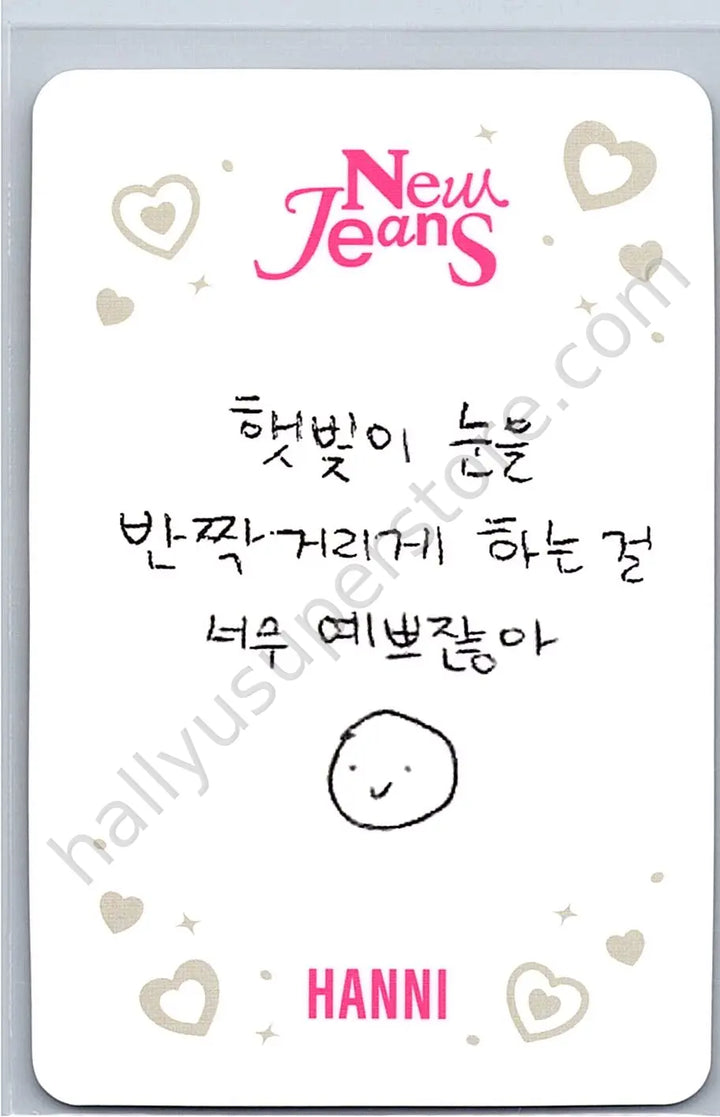 New
Jeans
햇빛이 눈을
반짝거리게 하는 걸
너무 예쁘잖아
HANNI
hallyusuperstore.com